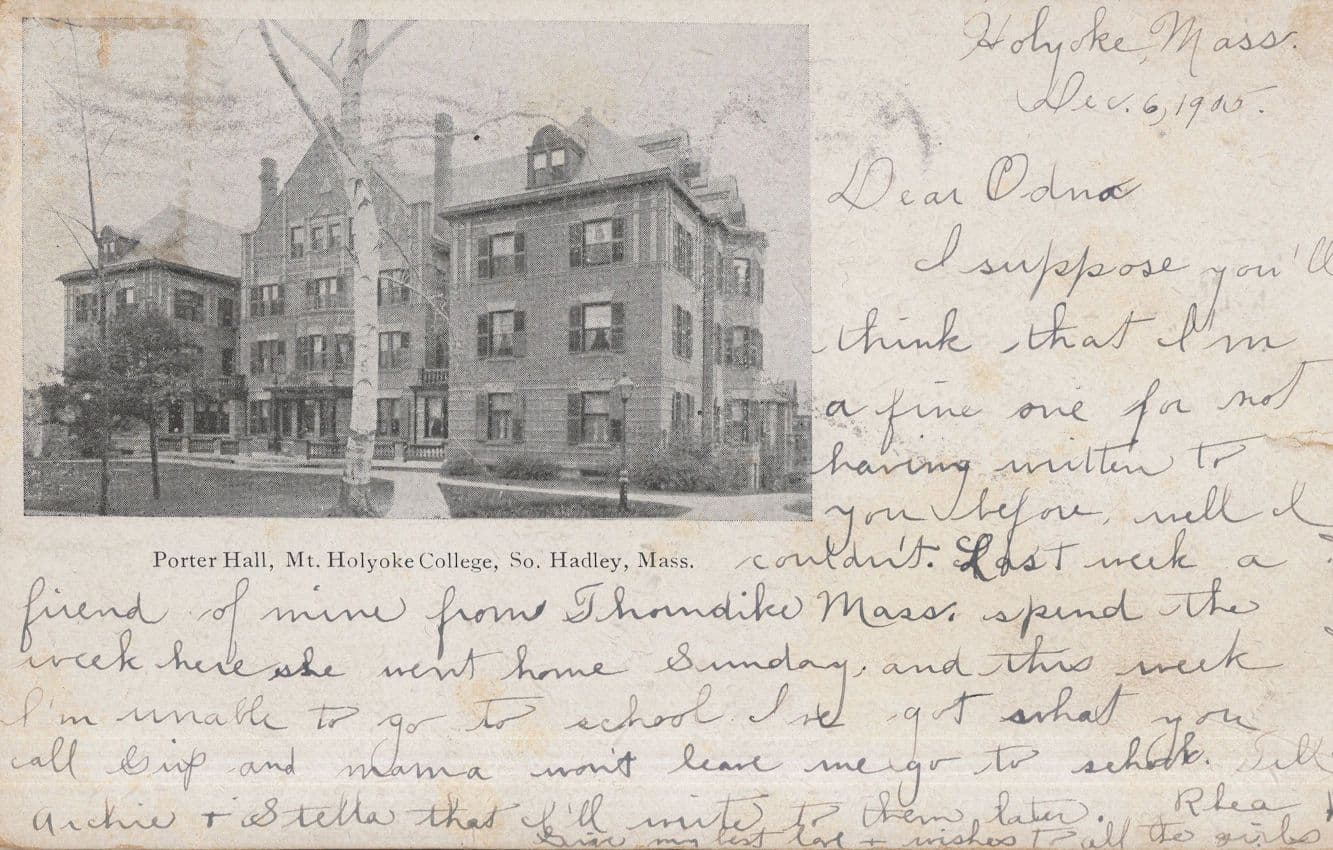 Holyoke, Mass.
Dec. 6, 1905.
Dear Edna
I suppose you'll
think that I'm
a fine one for not
having written to
you before, well I
couldn't. Last week a
Porter Hall, Mt. Holyoke College, So. Hadley, Mass.
friend of mine from Thorndike Mass. spend the
week here she went home Sunday, and this week
I'm unable to go to school. I've got what you
call Grip and mama won't leave me go to school. Tell
Archie + Stella that I'll write to them later. Rhea
Give my best love + wishes to all the girls